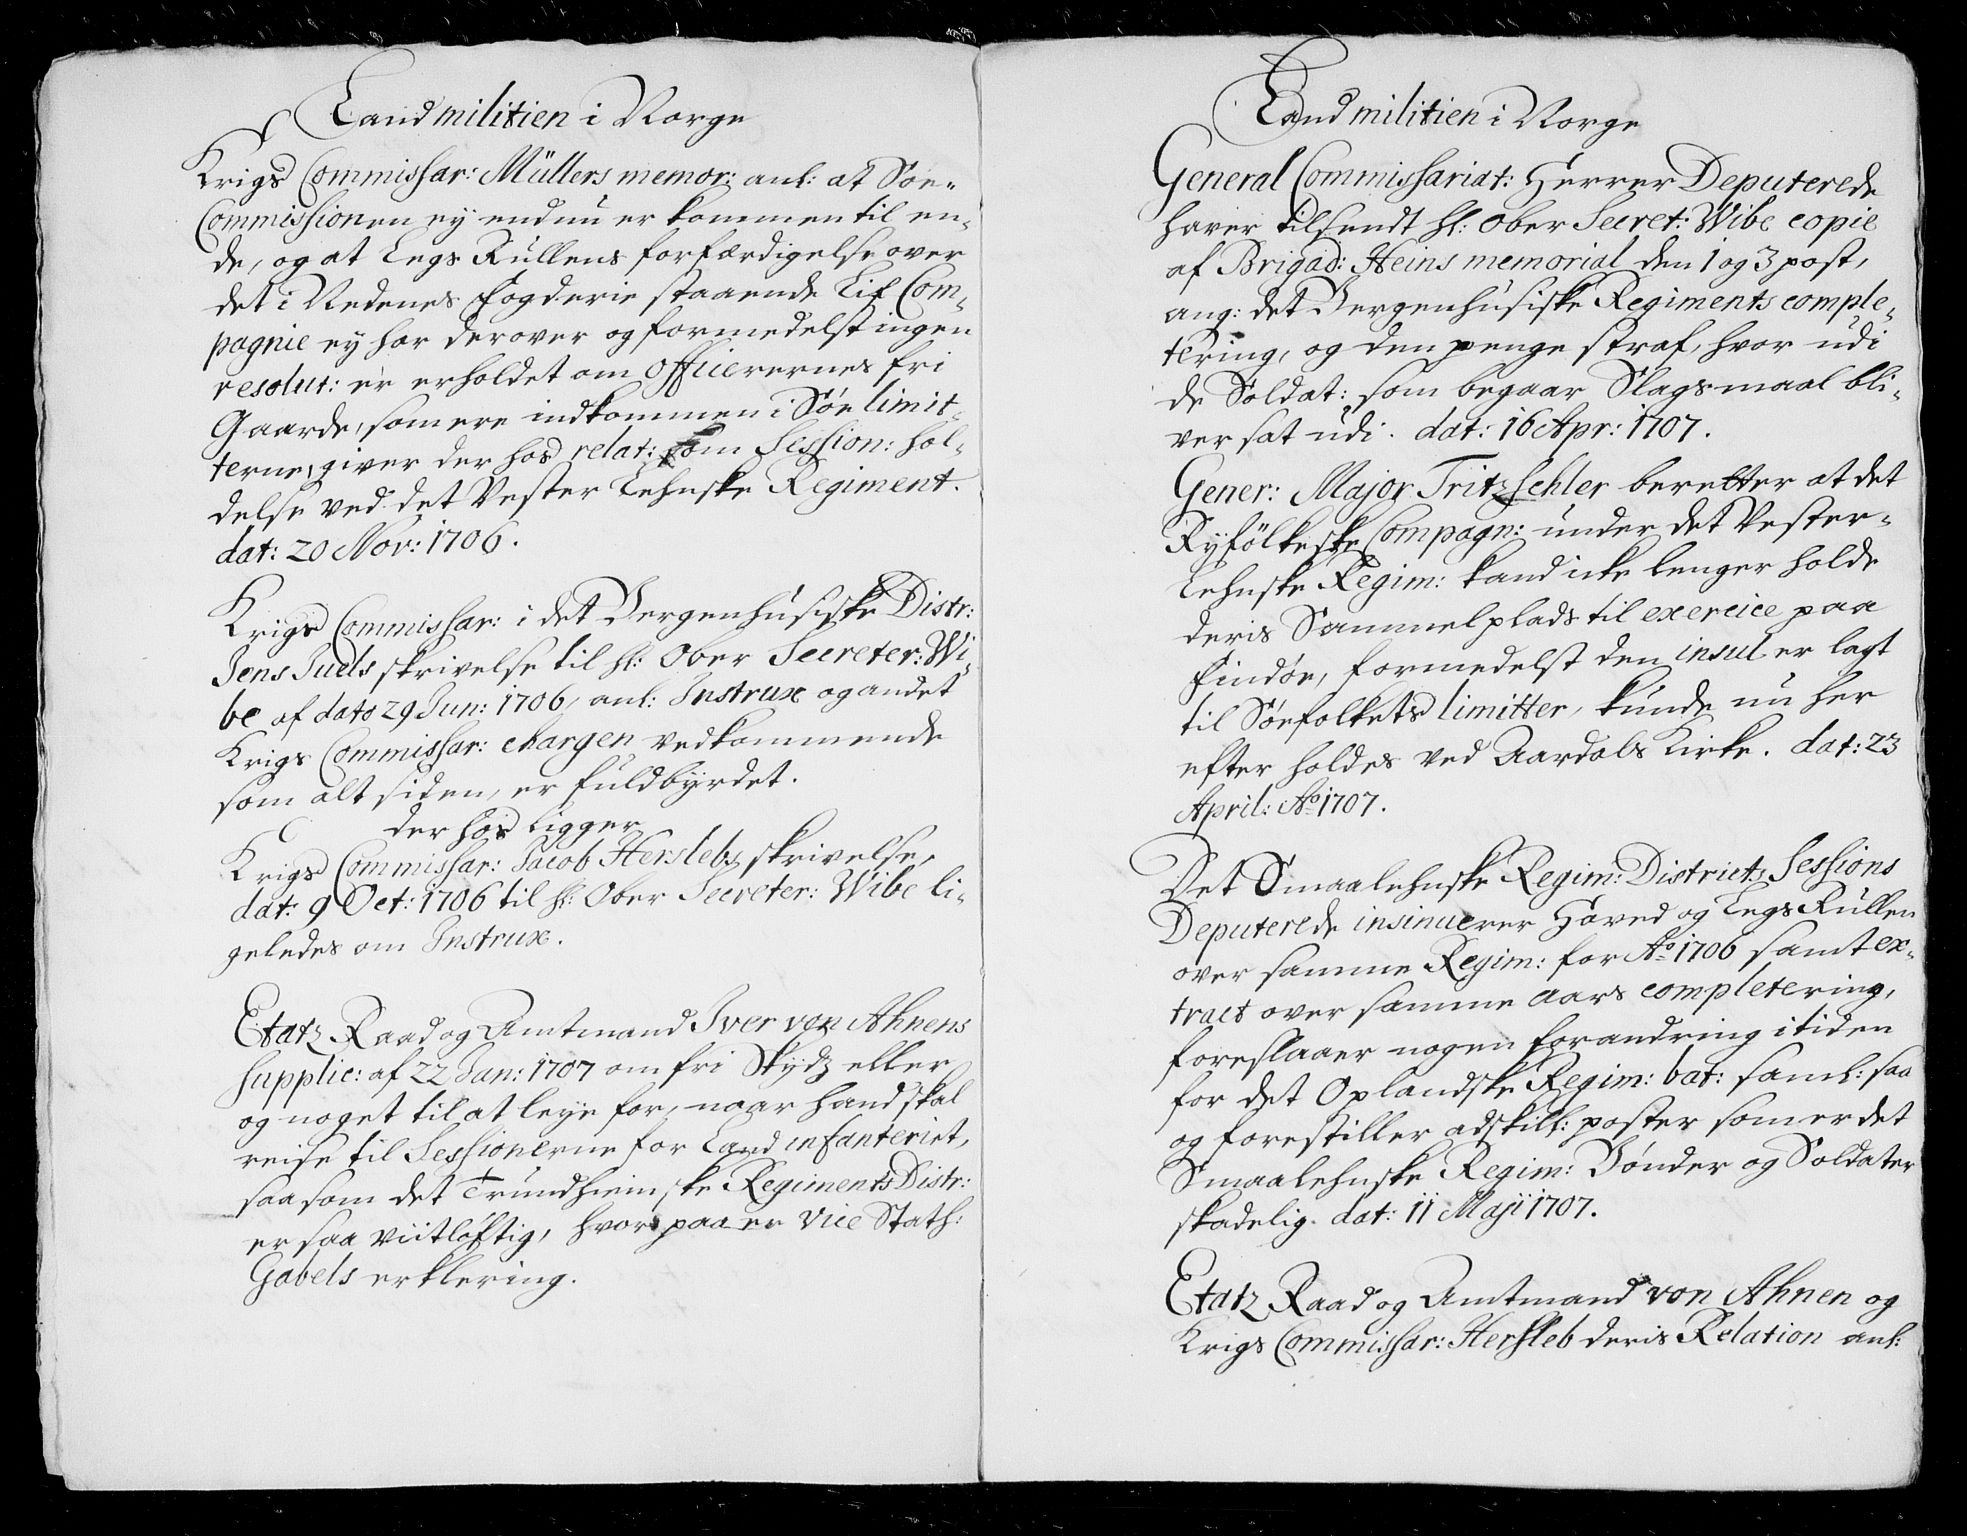 Landmilitien i Norge
Krigs Commissar: Müllers memor: anl: at Söe-
Commissionen ey endnu er kommen til en-
de, og at Legs Rullens forfærdigelse over
det i Nedenes Fogderie staaende Lif Com-
pagnie ey har derover og formedelst ingen
resolut: er erholdet om Officerernes fri
Gaarde, som ere indkommen i Söe limit-
terne, giver der hos relat: om Session: hol-
delse ved det Vester Lehnske Regiment.
dat: 20 Nov: 1706.
Krigs Commissar: i det Bergenhusiske Distr:
Jens Juels skrivelse til hl: Ober Secreter: Wi-
be af dato 29 Jun: 1706, anl: Instrux og andet
Krigs Commissar: chargen vedkommende
som alt siden, er fuldbyrdet.
der hos ligger
Krigs Commissar: Jacob Herslebs skrivelse,
dat: 9 Oct: 1706 til hl: Ober Secreter: Wibe li-
geledes om Instrux.
Etatz Raad og Amtmand Iver von Ahnens
supplic: af 22 Jan: 1707 om fri Skydz eller
og noget til at leye for, naar hand skal
reise til Sessionerne for Land infanteriet,
saasom det Trundhiemske Regiments Distr:
er saa viitløftig, hvor paa er Vice Stath:
Gabels erklering.
Landmilitien i Norge
General Commissariat: Herrer Deputerede
haver tilsendt hl: Ober Secret: Wibe copie
af Brigad: Heins memorial den 1 og 3 post,
ang: det Bergenhusiske Regiments comple-
tering, og den penge straf, hvor udi
de Soldat: som begaar Slagsmaal bli-
ver sat udi. dat: 16 Apr: 1707.
Gener: Major Tritzschler beretter at det
Ryfölkeske Compagn: under det Vester-
Lehnske Regim: kand icke lenger holde
deris Sammelplads til exercice paa
Findöe, formedelst den insul er lagt
til Söefolkets limitter, kunde nu her
efter holdes ved Aardals Kirke. dat: 23
April: Ao 1707.
Det Smaalehnske Regim: Districts Sessions
Deputerede insinuerer Hoved og Legs Rullen
over samme Regim: for Ao 1706 samt ex-
tract over samme aars completering,
foreslaaer nogen forandring i tiden
for det Oplandske Regim: bat: saml: saa
og forestiller adskill: poster som er det
Smaalehnske Regim: Bönder og Soldater
skadelig. dat: 11 Maji 1707.
Etatz Raad og Amtmand von Ahnen og
Krigs Commissar: Hersleb deris Relation anl: